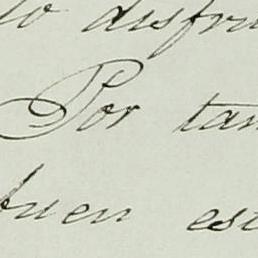 lo disfru
Por tan
buen est